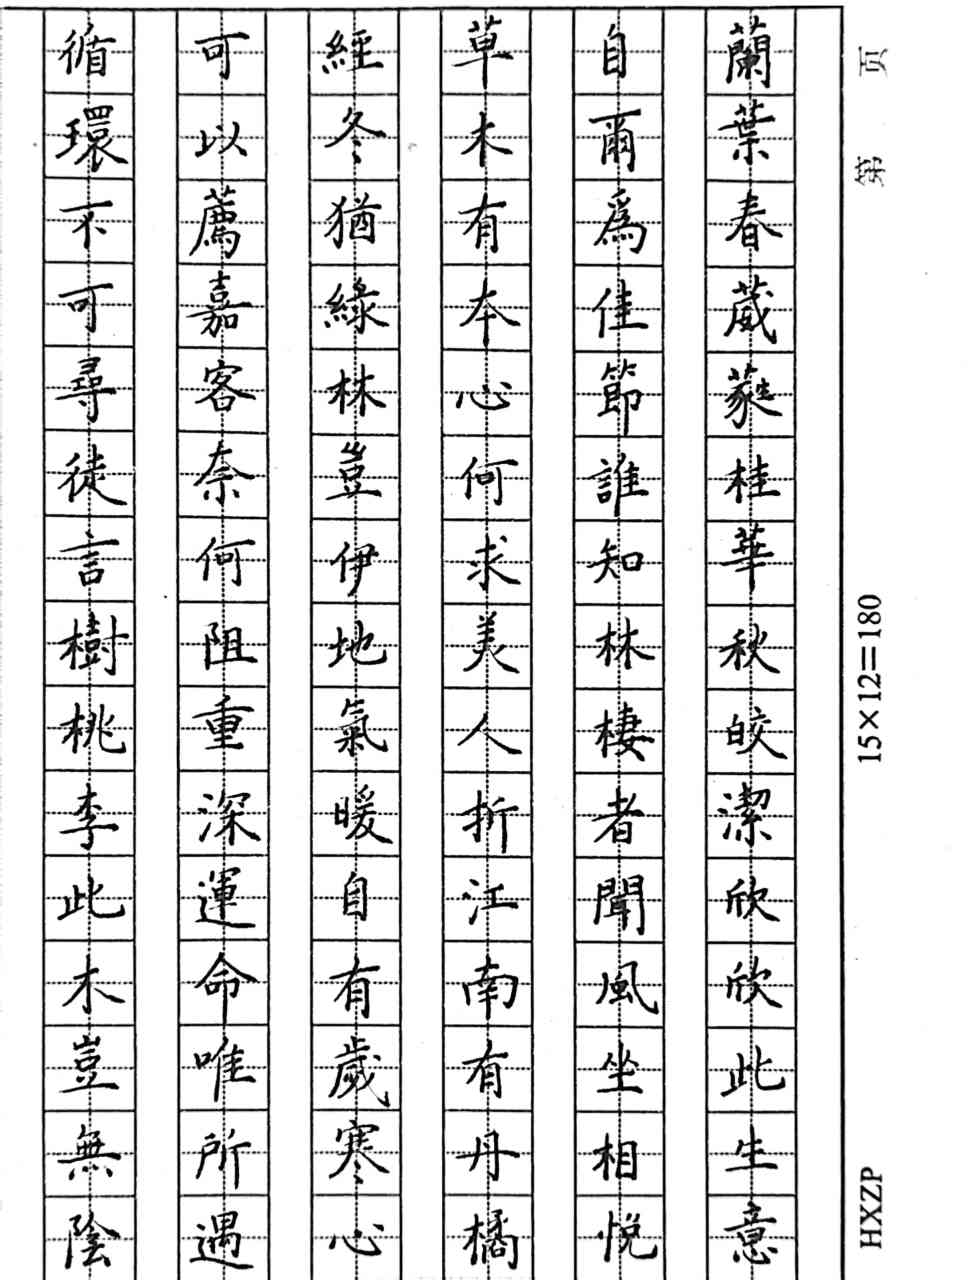 蘭葉春葳蕤桂華秋皎潔欣欣此生意
自爾為佳節誰知林棲者聞風坐相悅
草木有本心何求美人折江南有丹橘
經冬猶綠林豈伊地氣暖自有歲寒心
可以薦嘉客奈何阻重深運命唯所遇
循環不可尋徒言樹桃李此木豈無陰
第 页
15×12=180
HXZP